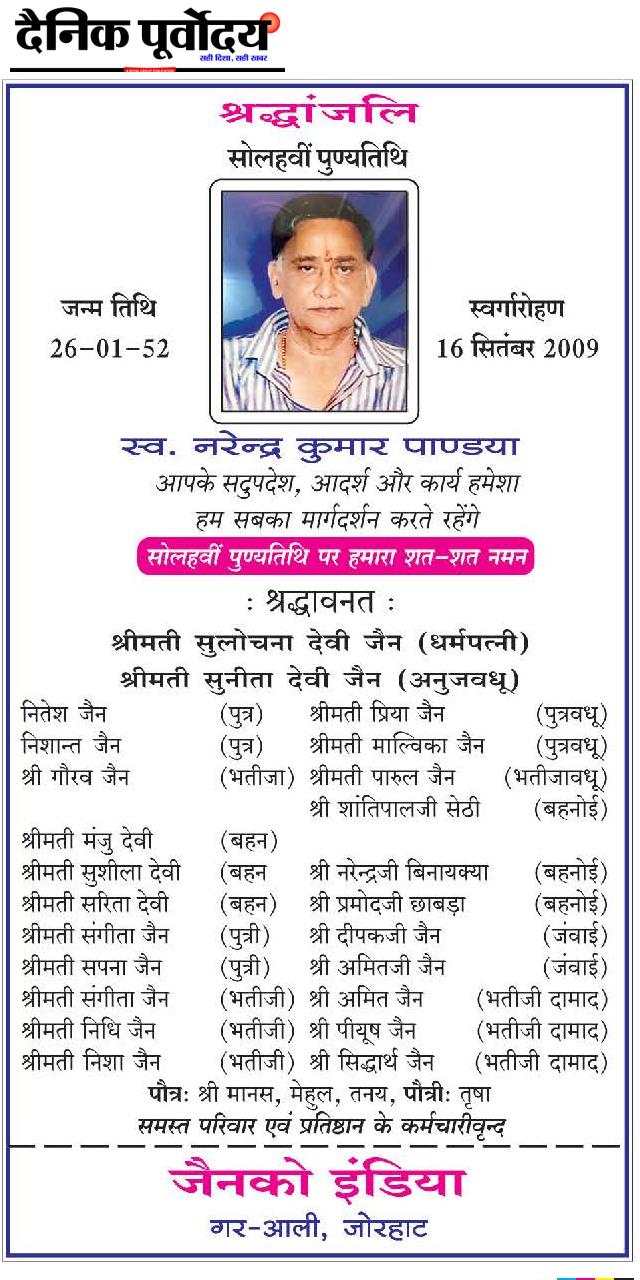 दैनिक पूर्वोदय
सही दिशा, सही खबर
श्रद्धांजलि
सोलहवीं पुण्यतिथि
जन्म तिथि
26-01-52
स्वर्गारोहण
16 सितंबर 2009
स्व. नरेन्द्र कुमार पाण्डया
आपके सदुपदेश, आदर्श और कार्य हमेशा
हम सबका मार्गदर्शन करते रहेंगे
सोलहवीं पुण्यतिथि पर हमारा शत-शत नमन
: श्रद्धावनत :
श्रीमती सुलोचना देवी जैन (धर्मपत्नी)
श्रीमती सुनीता देवी जैन (अनुजवधू)
नितेश जैन (पुत्र) श्रीमती प्रिया जैन (पुत्रवधू)
निशान्त जैन (पुत्र) श्रीमती माल्विका जैन (पुत्रवधू)
श्री गौरव जैन (भतीजा) श्रीमती पारुल जैन (भतीजावधू)
श्री शांतिपालजी सेठी (बहनोई)
श्रीमती मंजु देवी (बहन)
श्रीमती सुशीला देवी (बहन श्री नरेन्द्रजी बिनायक्या (बहनोई)
श्रीमती सरिता देवी (बहन) श्री प्रमोदजी छाबड़ा (बहनोई)
श्रीमती संगीता जैन (पुत्री) श्री दीपकजी जैन (जंवाई)
श्रीमती सपना जैन (पुत्री) श्री अमितजी जैन (जंवाई)
श्रीमती संगीता जैन (भतीजी) श्री अमित जैन (भतीजी दामाद)
श्रीमती निधि जैन (भतीजी) श्री पीयूष जैन (भतीजी दामाद)
श्रीमती निशा जैन (भतीजी) श्री सिद्धार्थ जैन (भतीजी दामाद)
पौत्र: श्री मानस, मेहुल, तनय, पौत्री: तृषा
समस्त परिवार एवं प्रतिष्ठान के कर्मचारीवृन्द
जैनको इंडिया
गर-आली, जोरहाट